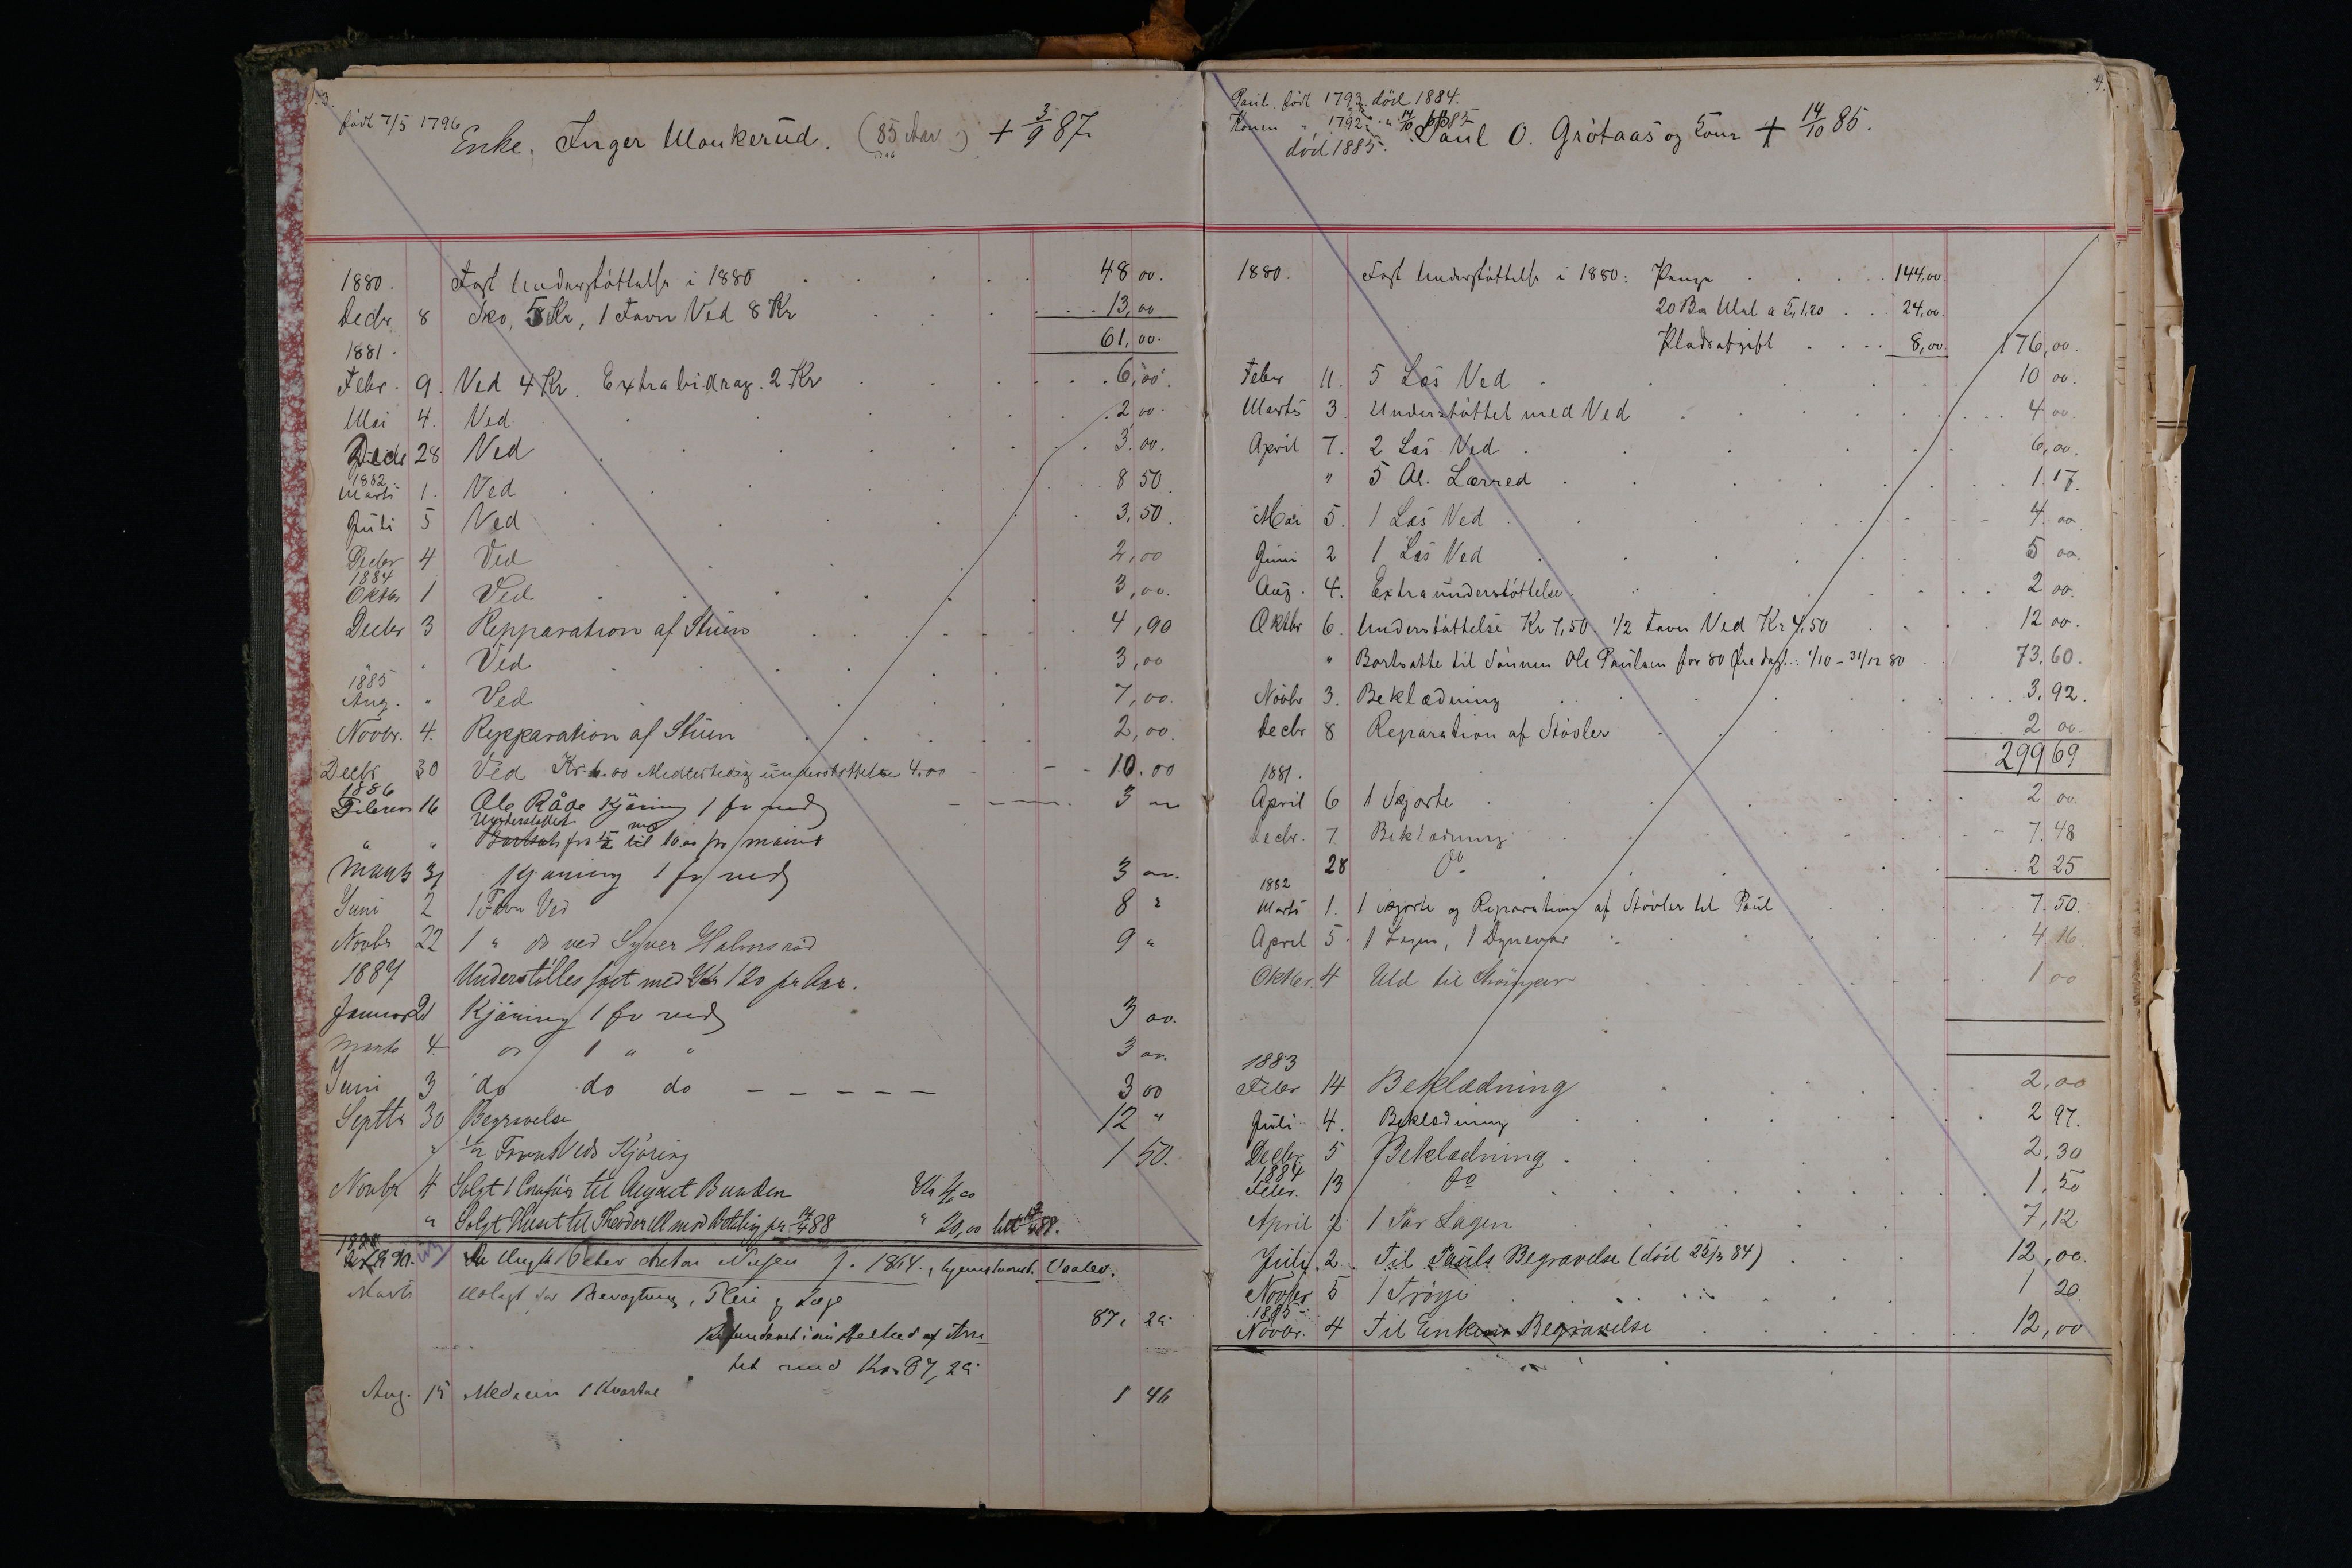 3.
født 7/5 1796
Enke, Inger Monkerud. (85 Aar) + 3/9 87
1796
1880. Fast Understøttelse i 1880 48 00.
Decbr 8 Sko, 5 Kr, 1 Favn Ved 8 Kr 13,00
1881. 61,00.
Febr. 9. Ved 4 Kr. Extrabidrag. 2 Kr 6,00.
Mai 4. Ved 2 00.
Decbr 28 Ved 3.00.
1882.
Marts 1. Ved 8 50.
Juli 5 Ved 3,50.
Decbr 4 Ved 2,00
1884
Oktbr 1 Ved 3,00.
Decbr 3 Repparation af Stuen 4,90
" " Ved 3,00
1885
Aug. " Ved 7,00.
Novbr. 4. Repparation af Stuen 2,00.
Decbr 30 Ved Kr. 6.00 Midlertidig understøttelse 4.00 10.00
1886
Februar 16 Ole Råde Kjøring 1 fv ved 3 00
Understøttet med
" " Bortsat fra 15/2 til 10.00 pr maint
Marts 31 Kjøring 1 fv ved 3 00.
Juni 2 1 Favn Ved 8 "
Novbr 22 1 " do ved Syver Halmsrød 9 "
1887 Understøttes fast med Kr 120 pr Aar.
Januar 21 Kjøring 1 fv ved 3 00.
Marts 4 do 1 " " 3 00.
Juni 3 do do do 3 00
Septbr 30 Begravelse 12 "
" 1/2 Favn Veds Kjøring 1 50.
Novbr 4 Solgt 1 til August Bunden Kr 4,00
" Solgt Huset til Theodor mod Betaling pr. 14/4 88 " 20,00 bet 14/4 88.
1890. Peter Anton f. 1864. Vaaler.
Marts for Bevogtning, Pleie og Læge 87, 29.
Refunderet i sin Helhed af Am-
tet med Kr. 87,29.
Aug. 15 Medicin 1 Kvartal 1 46
4.
Paul født 1793. død 1884.
Konen " 1792. " 14/10 1885
død 1885.
Paul O. Grøtaas og Kone + 14/10 85.
1880. Fast Understøttelse i 1880: Penge 144,00
20 Bm Mel a Kr 1,20 24,00.
Pladsafgift 8,00. 176,00.
Febr 11. 5 Læs Ved 10 00.
Marts 3. Understøttet med Ved 4 00.
April 7. 2 Læs Ved 6,00.
" 5 Al. Lærred 1.17.
Mai 5. 1 Læs Ved 4 00
Juni 2 1 Læs Ved 5 00.
Aug. 4. Extraunderstøttelse 2 00.
Oktbr 6. Understøttelse Kr 7,50. 1/2 Favn Ved Kr 4,50 12 00.
" Bortsatte til Sønnen Ole Paulsen for 80 Øre dagl.: 1/10 - 31/12 80 73.60.
Novbr 3. Beklædning 3.92.
Decbr 8 Reparation af Støvler 2 00.
299 69
1881.
April 6 1 Skjorte 2 00.
Decbr. 7. Beklædning 7.48
28 do 2 25
1882
Marts 1. 1 Skjorte og Reparation af Støvler til Paul 7.50.
April 5. 1 Lagen, 1 Dynevar 4 16.
Oktbr. 4 Uld til Strømper 1 00
1883
Febr 14 Beklædning 2,00
Juli 4. Beklædning 2 97.
Decbr 5 Beklædning 2,30
1884
Febr. 13 do 1,50
April 2 1 Par Lagen 7,12
Juli 2. Til Pauls Begravelse (død 25/5 84) 12,00.
Novbr 5 1 Trøye 1 20.
1885
Novbr. 4 Til Enkens Begravelse 12,00